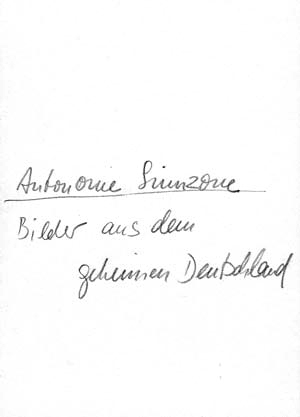 Autonome Sinnzone
Bilder aus dem
geheimen Deutschland